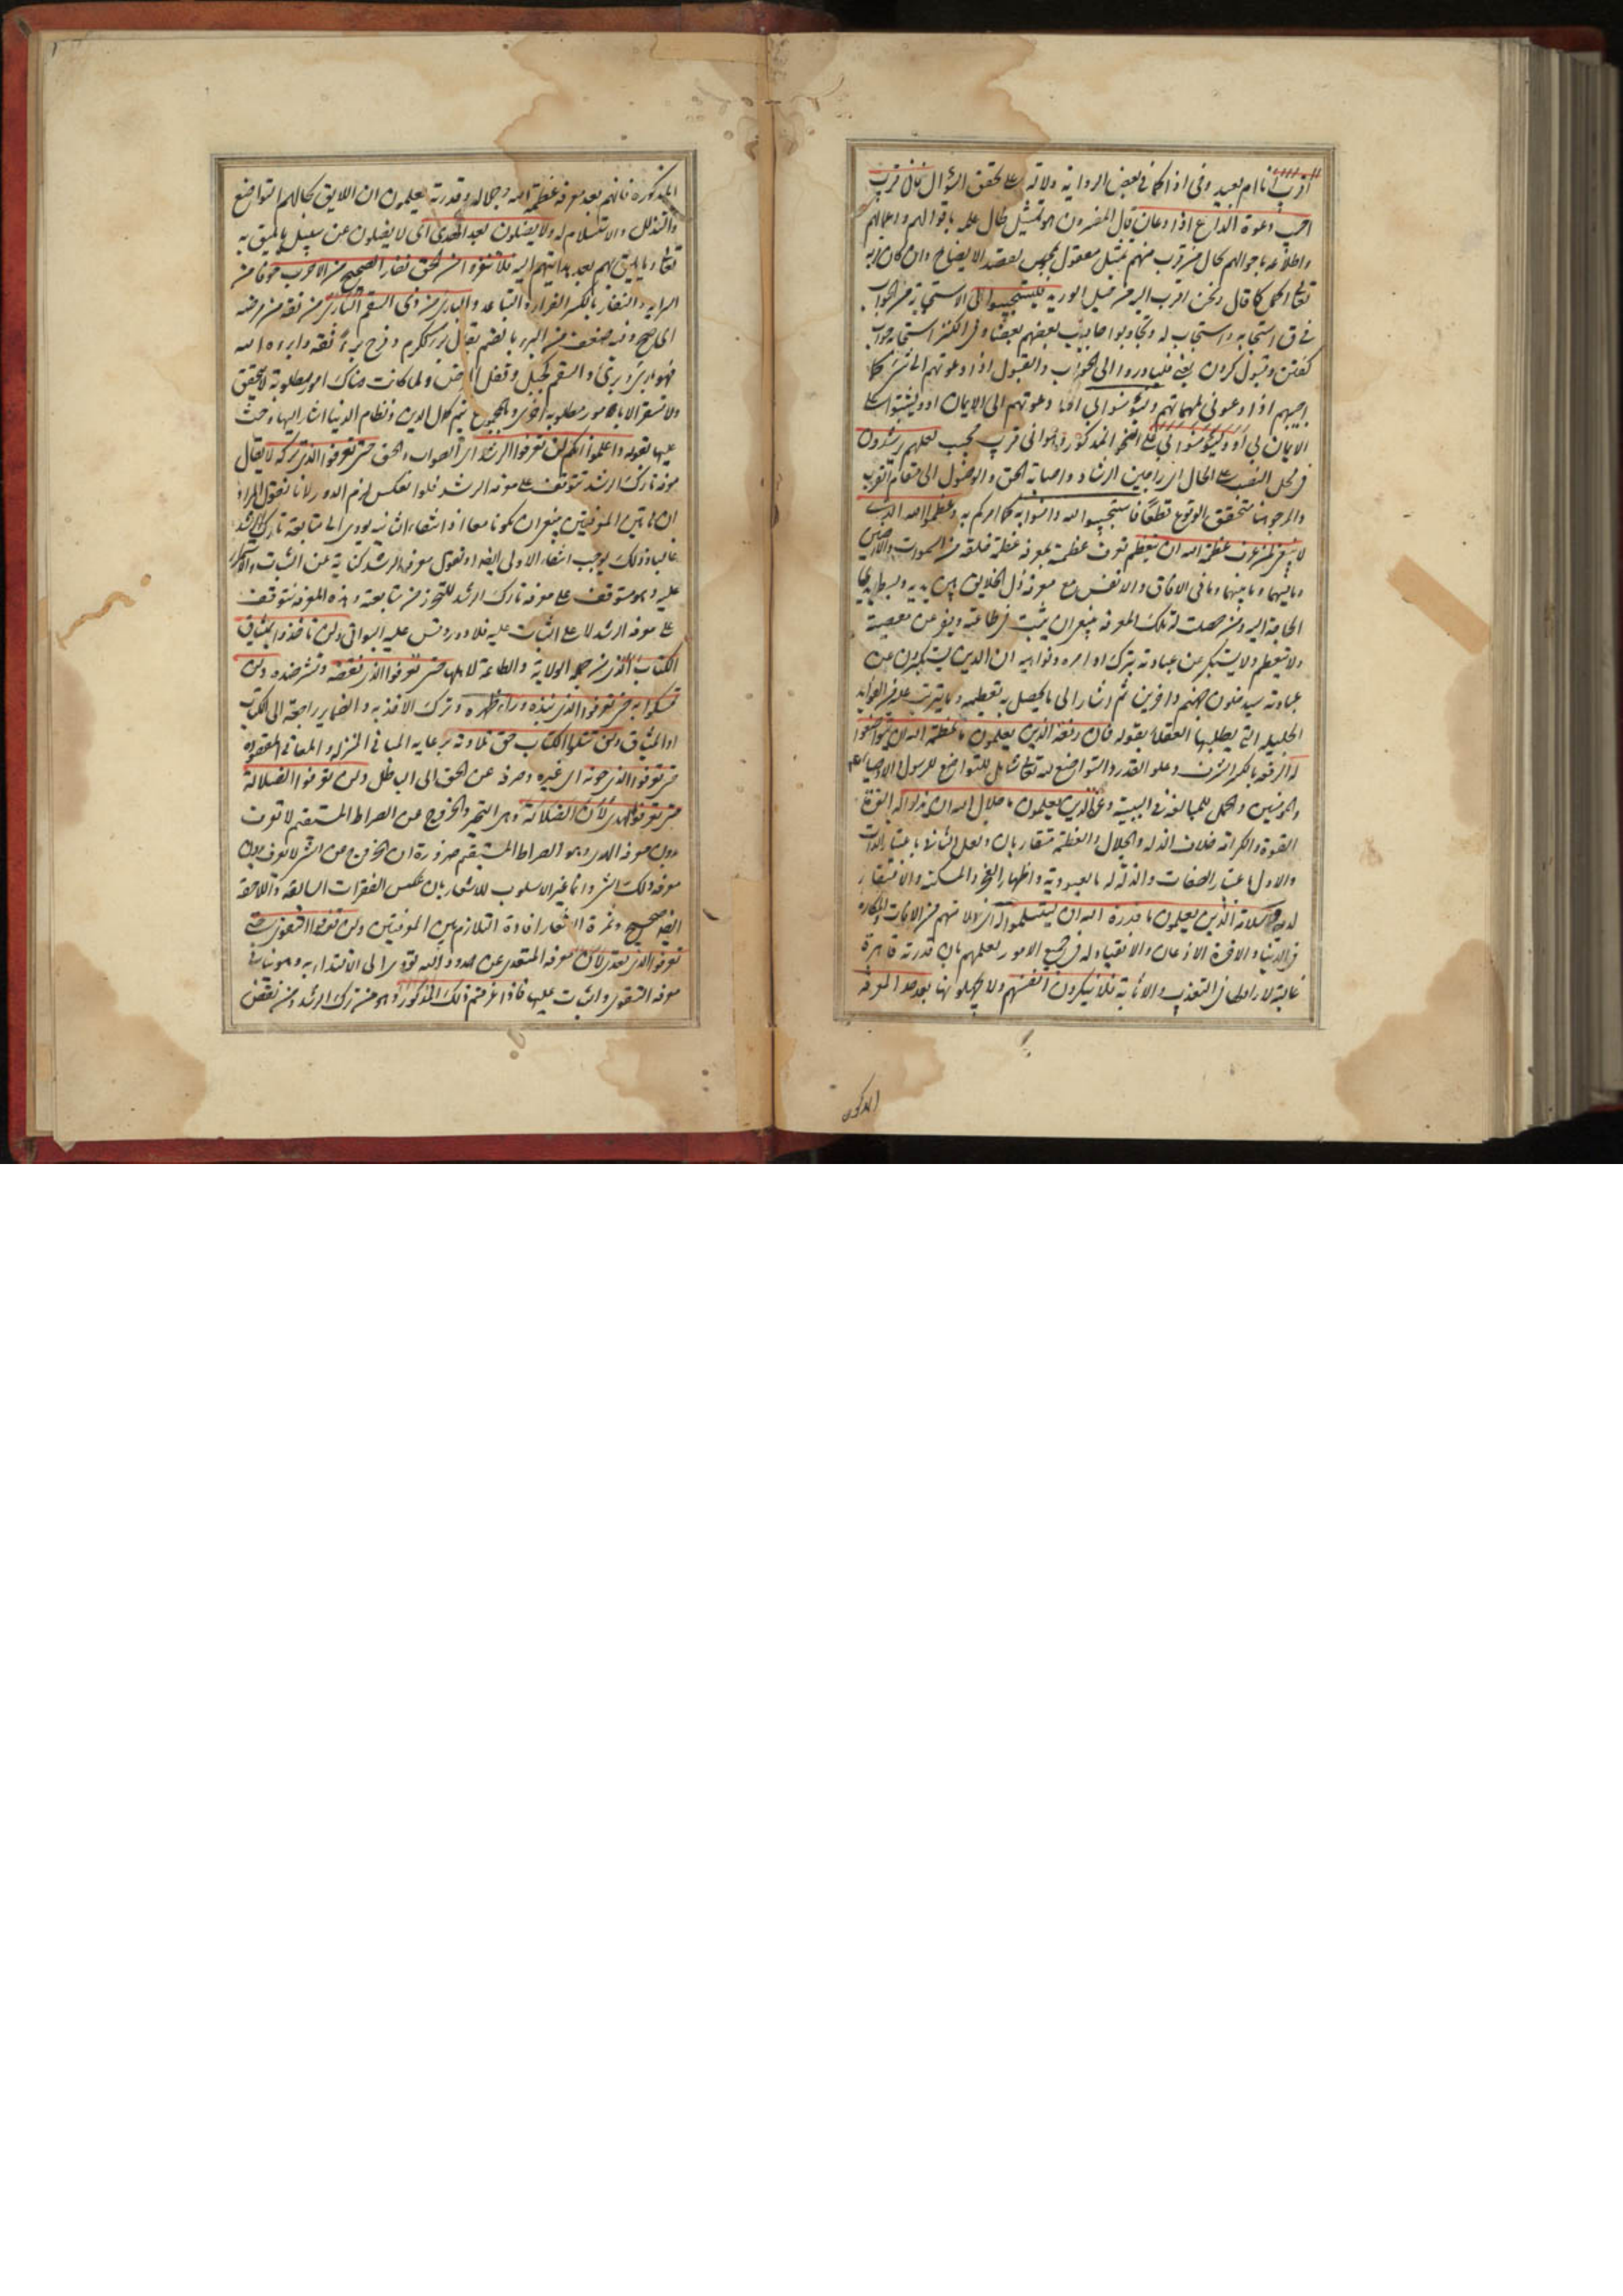 اقرب انا ام بعيد وفى اذا كما فى بعض الرواية دلالة على تحقق السؤال فانى قريب
اجيب دعوة الداع اذا دعان قال المفسرون هو تمثيل لحال علمه باقوالهم واعمالهم
واطلاعه باحوالهم كحال من قرب منهم تمثيل معقول بمحسوس لقصد الايضاح وان كان قربه
تعالى اكمل كما قال ونحن اقرب اليه من حبل الوريد فليستجيبوا لى الاستجابة من الجواب
فى ق استجابه واستجاب له وتجاوبوا جاوب بعضهم بعضا وفى الكنز استجابه جواب
كفتن وقبول كردن يعنى فليبادروا الى الجواب والقبول اذا دعوتهم الى شىء كما
اجيبهم اذا دعونى لمهماتهم وليؤمنوا بى اذا دعوتهم الى الايمان او وليثبتوا على
الايمان بى او وليؤمنوا بى على النحو المذكور وهو انى قريب مجيب لعلهم يرشدون
فى محل النصب على الحال اى راجين الرشاد واصابة الحق والوصول الى مقام القرب
والمرجو هنا متحقق الوقوع قطعا فاستجيبوا لله وامنوا به كما امركم به وعظموا الله الذى
لا ينبغى لمن عرف عظمة الله ان يتعظم تعرف عظمته بمعرفة عظمة خلقه من السموات والارضين
وما فيهما وما بينهما وما فى الافاق والانفس مع معرفة ذل الخلايق بين يديه وبسط ايدى
الحاجة اليه ومن حصلت له تلك المعرفة ينبغى ان يثبت فى طاعته ويفر من معصيته
ولا يتعظم ولا يستكبر عن عبادته بترك اوامره ونواهيه ان الذين يستكبرون عن
عبادته سيدخلون جهنم داخرين ثم اشار الى ما يحصل به تعظيمه وما يترتب عليه من الفوايد
الجليلة التى يطلبها العقلاء بقوله فان رفعة الذين يعلمون ما عظمة الله ان يتواضعوا
له الرفعة بالكسر الشرف وعلو القدر والتواضع لله تعالى شامل للتواضع للرسول والاوصياء
والمؤمنين والحمل للمبالغة فى السببية وعز الذين يعلمون ما جلال الله ان يذلوا له العزة
القوة والكرامة خلاف الذلة والجلال والعظمة متقاربان ولعل الثانى باعتبار الذات
والاول باعتبار الصفات والذلة له بالعبودية واظهار العجز والمسكنة والافتقار
لديه وسلامة الذين يعلمون ما قدرة الله ان يستسلموا له اى سلامتهم من الافات والمكاره
فى الدنيا والاخرة الاذعان والانقياد له فى جميع الامور لعلمهم بان قدرته قاهرة
غالبة لا راد لها فى التعذيب والاثابة فلا ينكرون انفسهم ولا يجهلونها بعد حد المعرفة
المذكورة
المذكورة فانهم بعد معرفة عظمة الله وجلاله وقدرته يعلمون ان اللايق بحالهم التواضع
والتذلل والاستسلام له ولا يضلون بعد الهدى اى لا يضلون عن سبيل ما يليق به
تعالى وما يليق بهم بعد هدايتهم اليه فلا تنفروا من الحق نفار الصحيح من الاجرب خوفا من
السراية والنفار بالكسر الفرار والتباعد والبارى من ذى السقم البارى من نقه من مرضه
اى صح وفيه ضعف من البرء بالضم يقال برء ككرم وفرح برءا نقه وابراه الله
فهو بارئ وبرئ والسقم كجبل وقفل المرض ولما كانت هناك امور مطلوبة لا تتحقق
ولا تستقر الا بامور مطلوبة اخرى وبالمجموع يتم كمال الدين ونظام الدنيا اشار اليها وحث
عليها بقوله واعلموا انكم لن تعرفوا الرشد اى الصواب والحق حتى تعرفوا الذى تركه لا يقال
معرفة تارك الرشد تتوقف على معرفة الرشد فلو انعكس لزم الدور لانا نقول المراد
ان هاتين المعرفتين ينبغى ان تكونا معا اذ انتفاء الثانية يودى الى متابعة تارك الرشد
غالبا وذلك يوجب انتفاء الاولى ايضا او نقول معرفة الرشد كناية عن الثبات والاستمرار
عليه وهو متوقف على معرفة تارك الرشد للتحرز من متابعته وهذه المعرفة تتوقف
على معرفة الرشد لا على الثبات عليه فلا دور وقس عليه البواقى ولن تاخذوا بميثاق
الكتاب الذى من جملة الولاية والطاعة لاهلها حتى تعرفوا الذى نقضه وترفضوه ولن
تمسكوا به حتى تعرفوا الذى نبذه وراء ظهره وترك الاخذ به والضماير راجعة الى الكتاب
او الميثاق ولن تتلوا الكتاب حق تلاوته برعاية المبانى المنزلة والمعانى المقصودة
حتى تعرفوا الذى حرفه الى غيره وصرفه عن الحق الى الباطل ولن تعرفوا الضلالة
حتى تعرفوا الهدى لان الضلالة وهى التحير والخروج عن الصراط المستقيم لا تعرف
بدون معرفة الهدى وهو الصراط المستقيم ضرورة ان الخروج من الشىء لا يعرف بدون
معرفة ذلك الشىء وانما غير الاسلوب للاشعار بان عكس الفقرات السابقة واللاحقة
ايضا صحيح وثمرة الاشعار افادة التلازم بين المعرفتين ولن تعرفوا التقوى حتى
تعرفوا الذى تعدى لان معرفة المتعدى عن حدود الله تؤدى الى الاقتداء به وهو ينافى
معرفة التقوى والثبات عليها فاذا عرفتم ذلك المذكور وهو من ترك الرشد ومن نقض